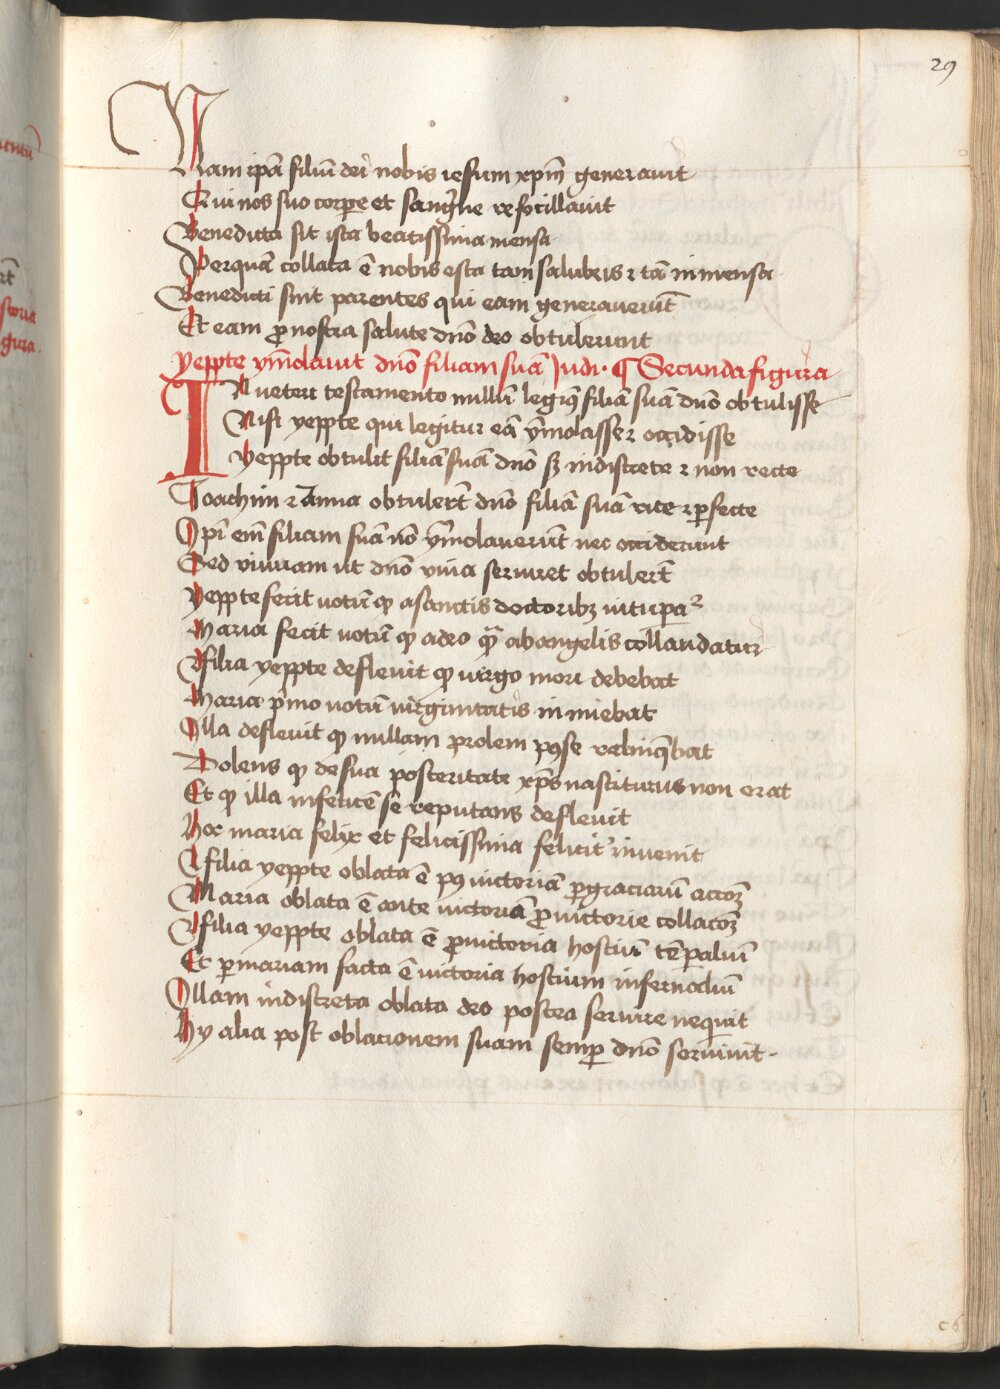 29
Nam ip̄a filiū dei nobis iesum xp̄m generauit
Qui nos suo corpere et sangwine refocillauit
Benedicta sit ista beatissima mensa
Per quā collata ē nobis esca tam salubris ⁊ tā inmensa
Benedicti sint parentes qui eam generauerūt
Et eam ꝓ nostra salute dn̄o deo obtulerunt
yeppte ym̄olauit dn̄o filiam suā Judi· ¶ Secunda figura
IN veteri testamento nullū legim⁹ filiā suā dn̄o obtulisse
Nisi yeppte qui legitur eā ym̄olasse ⁊ occidisse
yeppte obtulit filiā suā dn̄o sꝫ indiscrete ⁊ non recte
Ioachim ⁊ Anna obtulerūt dn̄o filiā suā rite ⁊ ꝑfecte
Ipi em̄ filiam suā nō ym̄olauerūt nec occiderunt
Sed viuuam ut dn̄o viua seruiret obtulerūt
yeppte fecit uotū qꝫ a sanctis doctoribꝫ uitupaꝛ
Maria fecit uotū qꝫ a deo ab angelis collaudatur
filia yeppte defleuit qꝫ uirgo mori debebat
Maria pͥmo uotū uirginitatis ininiebat
Illa defleuit qꝫ nullam prolem pꝰ se relinq̄bat
Dolens qꝫ de sua posteritate xp̄s nasciturus non erat
Et qꝫ illa infelicē se reputans defleuit
Hoc maria felix et felicissima felicitͬ inuenit
filia yeppte oblata ē pꝰ uictoriā ꝑ graciarū accōꝫ
Maria oblata ē ante uictoriā ꝓ uictorie collacōꝫ
filia yeppte oblata ē ꝓ uictoria hostiū tēꝑaliū
Et ꝑ mariam facta ē uictoria hostium infernaliū
Illam indiscreta oblata deo postea seruire nequit
Hy alia post oblacionem suam semꝑ dn̄o seruiuit·